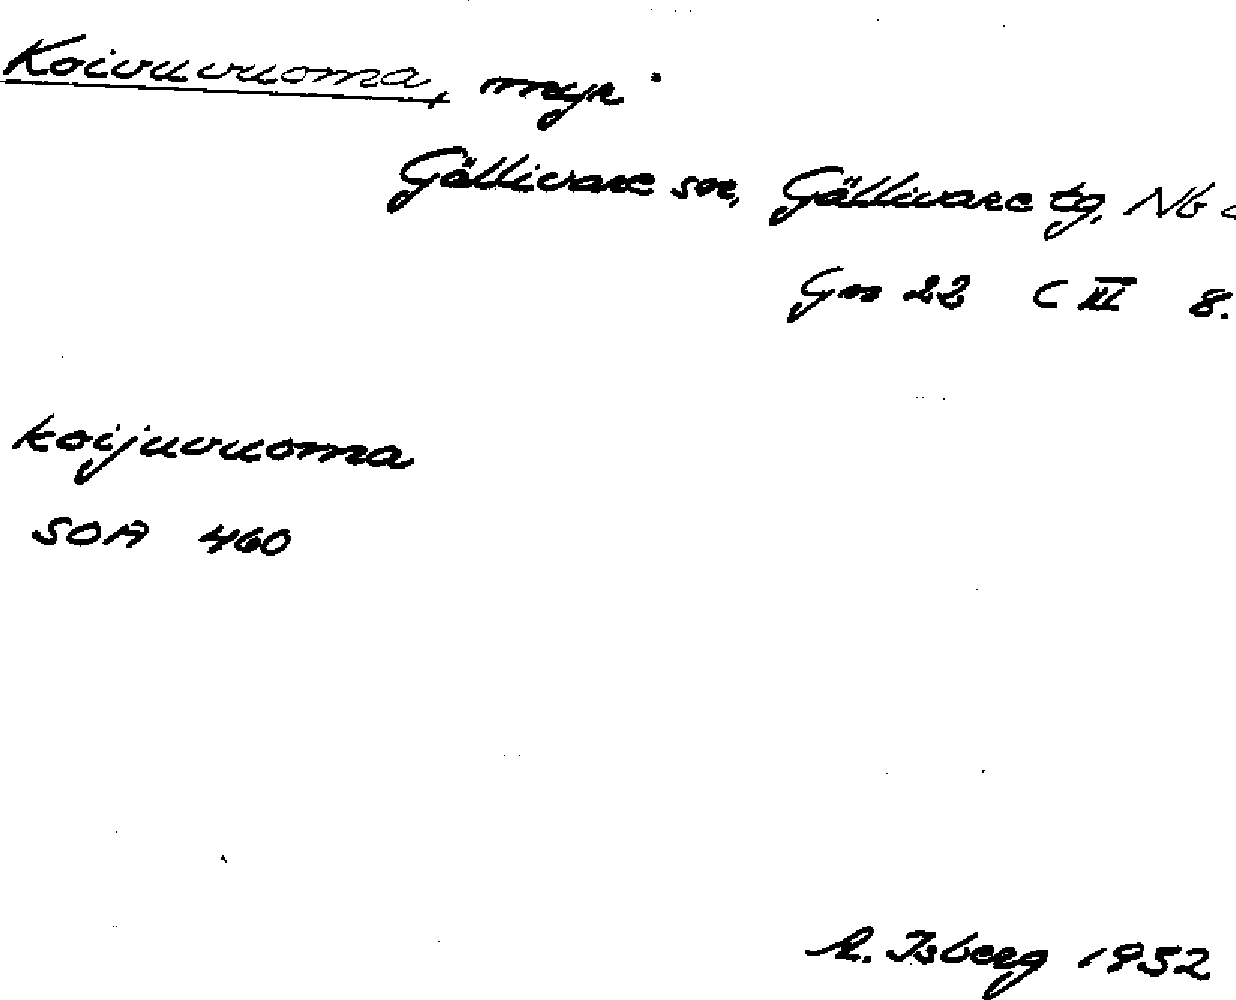 Koivuvuoma, myr
Gällivare sn, Gällivare tg, Nb
Gm 22 C III 8.
koijuvuoma
SOA 460
A. Isberg 1952